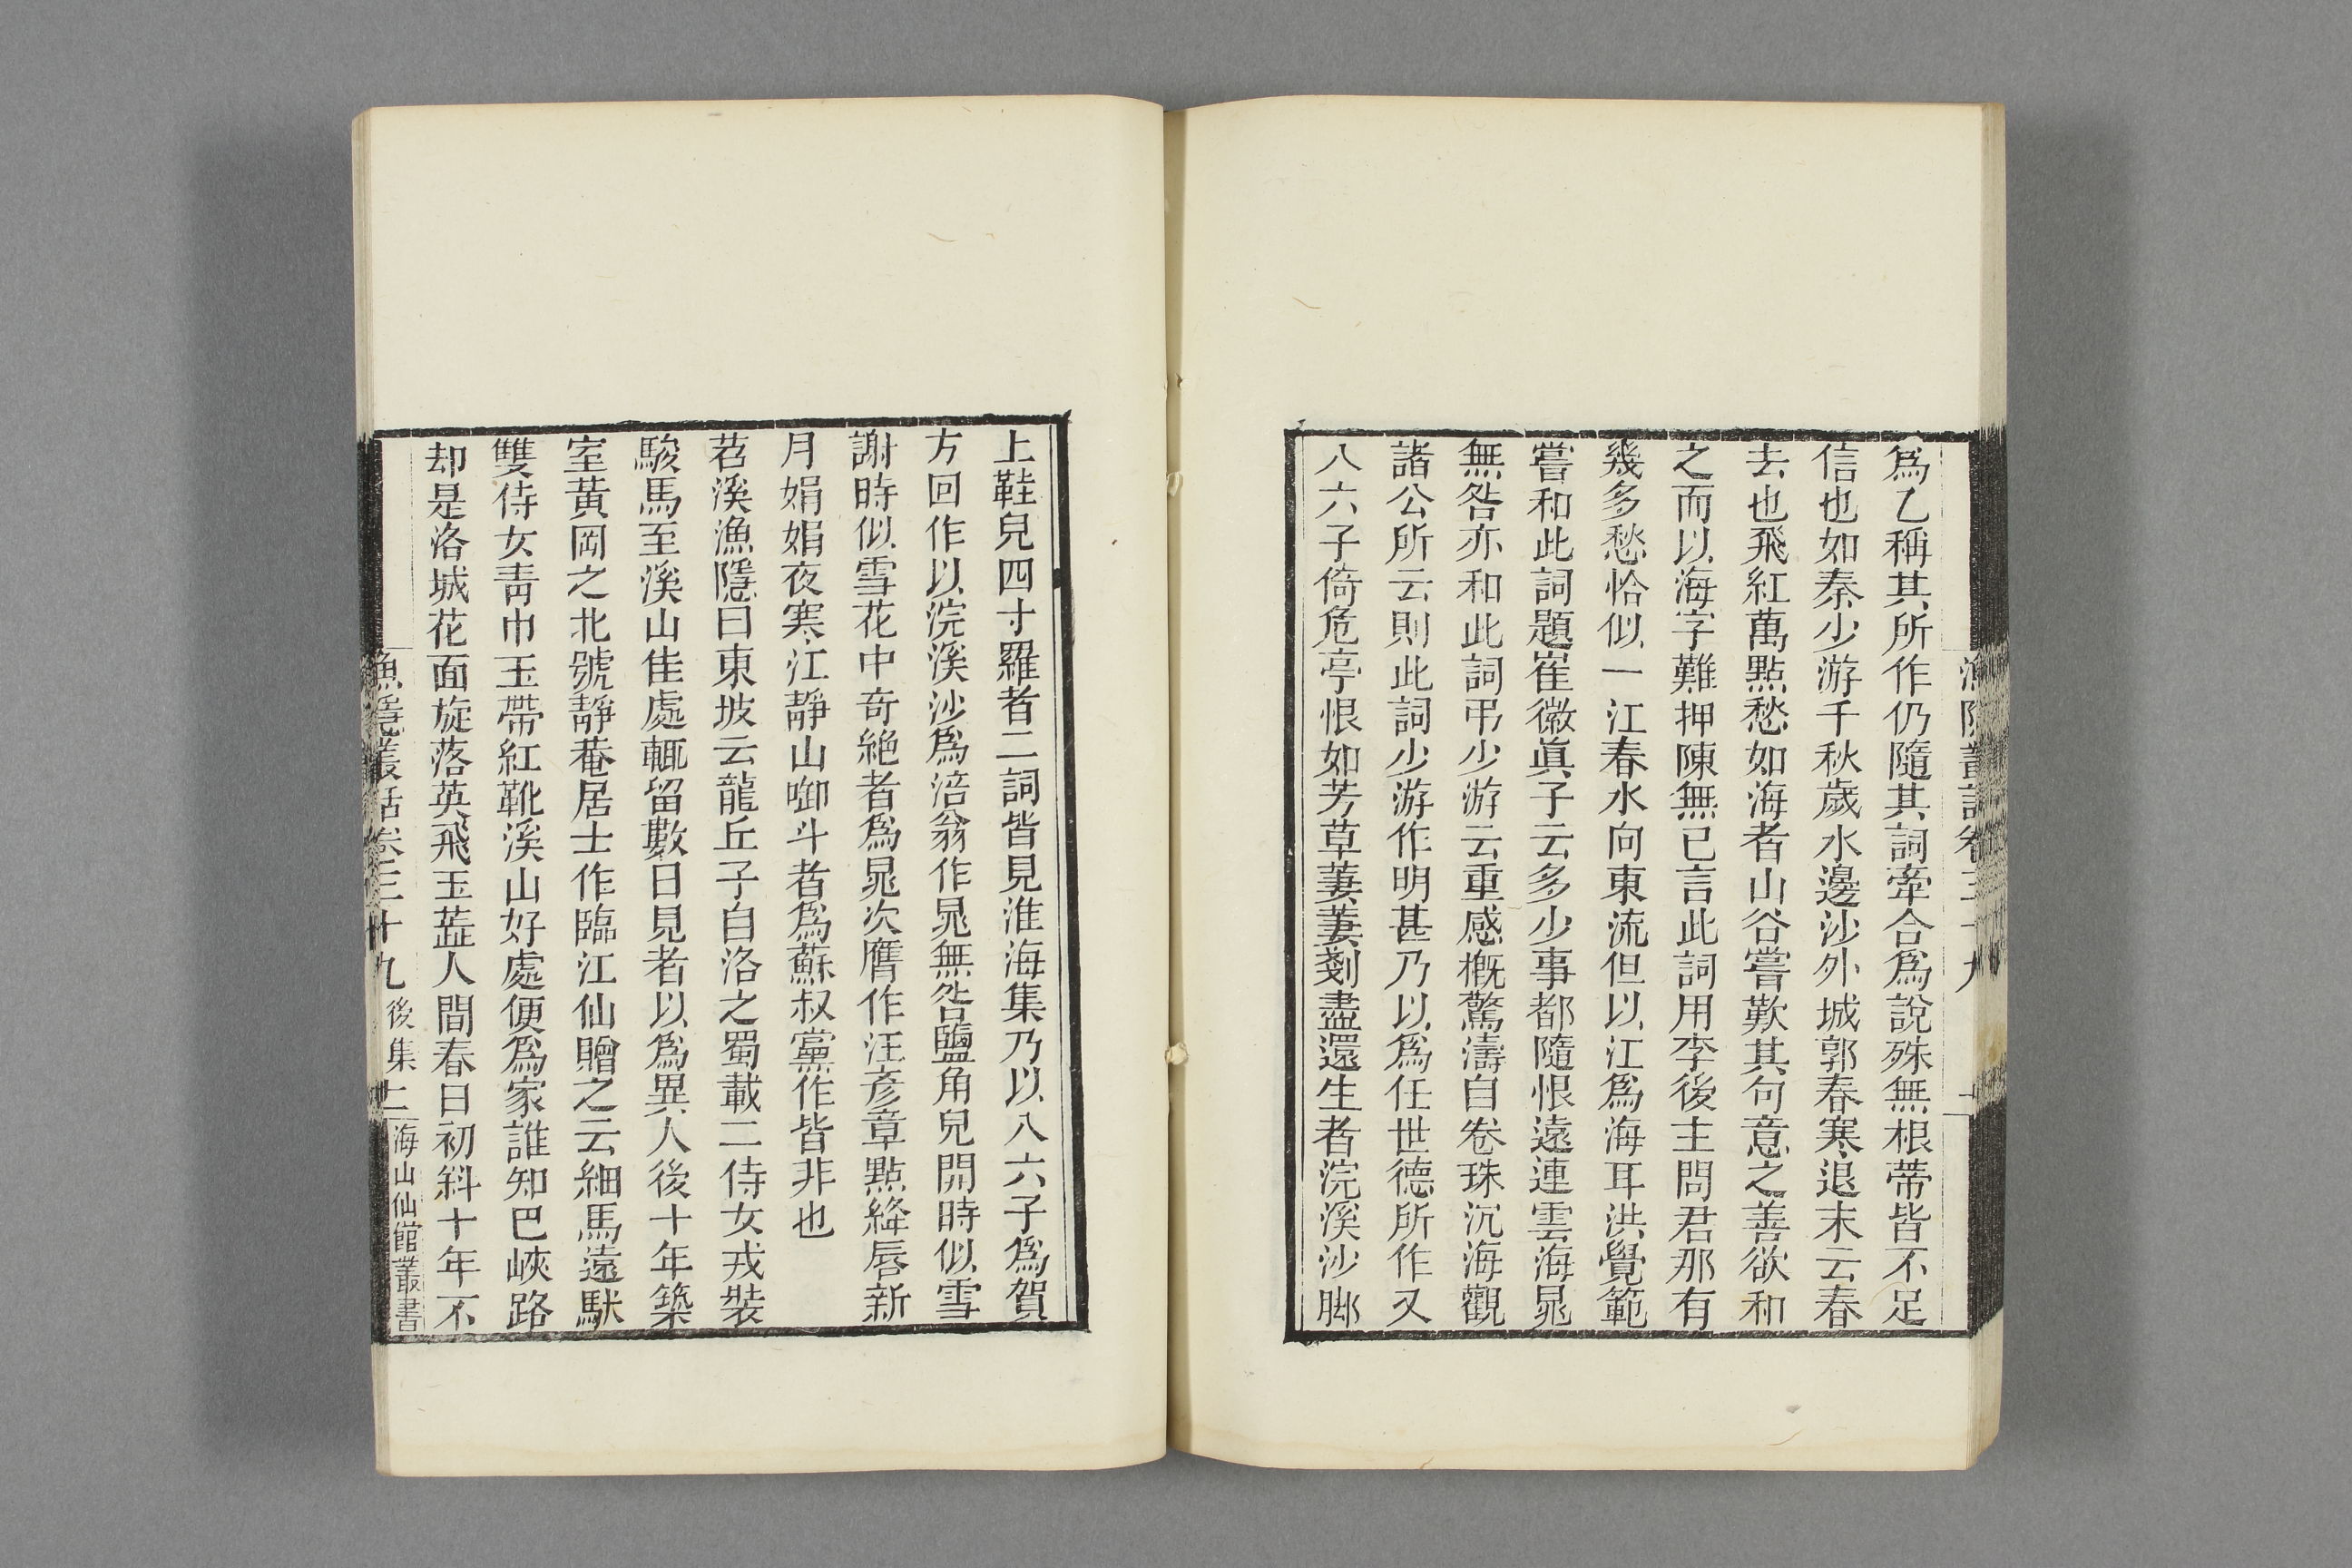 爲乙稱其所作仍隨其詞牽合爲說殊無根蒂皆不足
信也如秦少游千秋歲水邊沙外城郭春寒退末云春
去也飛紅萬點愁如海者山谷嘗歎其句意之善欲和
之而以海字難押陳無已言此詞用李後主問君那有
幾多愁恰似一江春水向東流但以江爲海耳洪覺範
嘗和此詞題崔徽眞子云多少事都隨恨遠連雲海晁
無咎亦和此詞弔少游云重感槪驚濤自卷珠沉海觀
諸公所云則此詞少游作明甚乃以爲任世德所作又
八六子倚危亭恨如芳草萋萋剗盡還生者浣溪沙脚
上鞋兒四寸羅者二詞皆見淮海集乃以八六子爲賀
方回作以浣溪沙爲涪翁作晁無咎鹽角兒開時似雪
謝時似雪花中奇絶者爲晁次膺作汪彥章點絳唇新
月娟娟夜寒江靜山啣斗者爲蘇叔黨作皆非也
苕溪漁隱曰東坡云龍丘子自洛之蜀載二侍女戎裝
駿馬至溪山佳處輒留數日見者以爲異人後十年築
室黃岡之北號靜菴居士作臨江仙贈之云細馬遠馱
雙侍女靑巾玉帶紅靴溪山好處便爲家誰知巴峽路
却是洛城花面旋落英飛玉蕋人間春日初斜十年不
漁隱叢話卷三十九 後集 二 海山仙館叢書